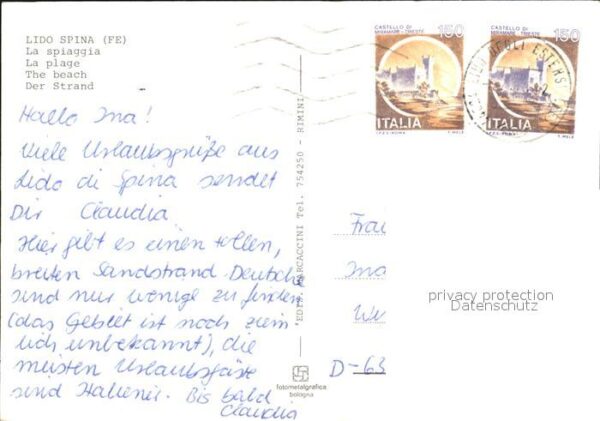 LIDO SPINA (FE)
La spiaggia
La plage
The beach
Der Strand
Hallo Ina!
Viele Urlaubsgrüße aus
Lido di Spina sendet
Dir Claudia
Hier gibt es einen tollen,
breiten Sandstrand. Deutsche
sind nur wenige zu finden
(das Gebiet ist noch ziem
lich unbekannt), die
meisten Urlaubsgäste
sind Italiener. Bis bald
Claudia
EDIZ. MARCACCINI Tel. 754250 - RIMINI
fotometalgrafica
bologna
CASTELLO DI
MIRAMARE - TRIESTE
150
ITALIA
I.P.Z.S.-ROMA
E. MELE
CASTELLO DI
MIRAMARE - TRIESTE
150
ITALIA
I.P.Z.S.-ROMA
E. MELE
LIDO DEGLI ESTENSI
Frau
Ina
privacy protection
Datenschutz
D-63